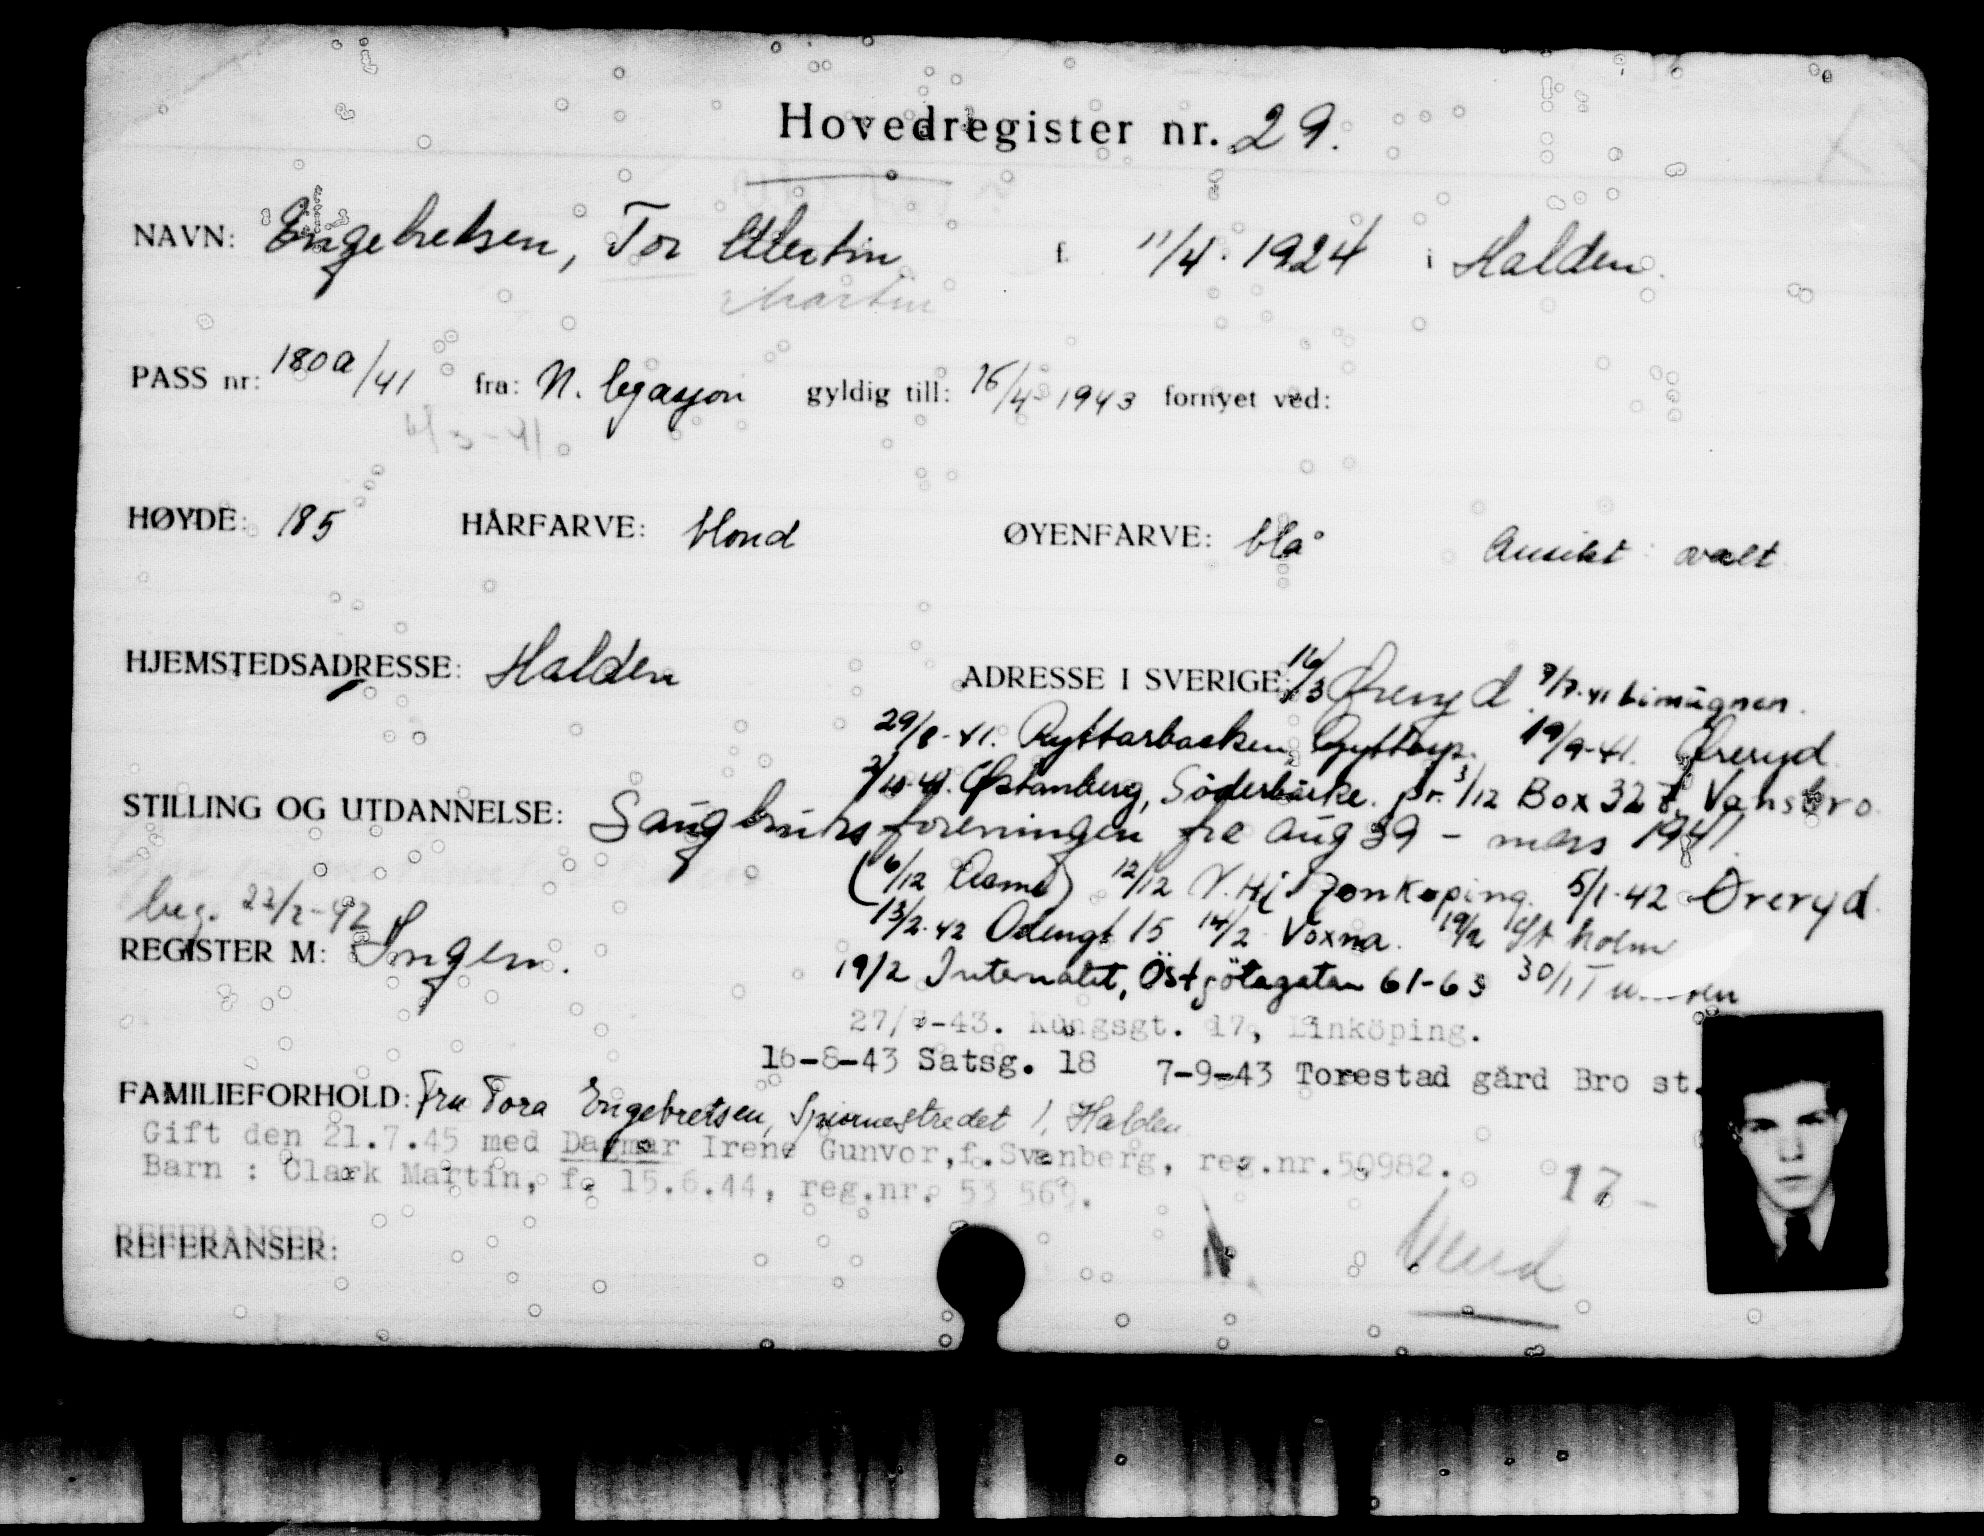 Hovedregister nr. 29.
NAVN: Engebretsen, Tor Martin f. 11/4. 1924 i Halden.
Martin
PASS nr: 180a/41 fra: N. legasjon gyldig till: 16/4 1943 fornyet ved:
4/3-41
HØYDE: 185 HÅRFARVE: blond ØYENFARVE: blå Ansikt: ovalt
HJEMSTEDSADRESSE: Halden ADRESSE I SVERIGE: 16/3 Øreryd 9/7-41 Limingnen.
29/8-41. Ryttarbacken, Gyttorp. 19/9-41. Øreryd.
2/10-41. Østanberg, Söderbärke. pr. 3/12 Box 327, Vansbro.
STILLING OG UTDANNELSE: Saugbruksforeningen fra aug 39 - mars 1941.
(6/12 ) 12/12 V. Hj Jönköping. 5/1-42 Øreryd.
beg. 22/2-42 13/2-42 Odengt 15 14/2 Voxna. 19/2 St holm
REGISTER M: Ingen. 19/2 Internatet, Östgötagatan 61-63 30/1
27/ -43. Kungsgt. 17, Linköping.
16-8-43 Satsg. 18 7-9-43 Torestad gård Bro st.
FAMILIEFORHOLD: Fru Tora Engebretsen, 1, Halden
Gift den 21.7.45 med Dagmar Irene Gunvor, f. Svanberg, reg.nr.50982.
Barn : Clark Martin, f. 15.6.44, reg.nr. 53 569.
17-
REFERANSER: